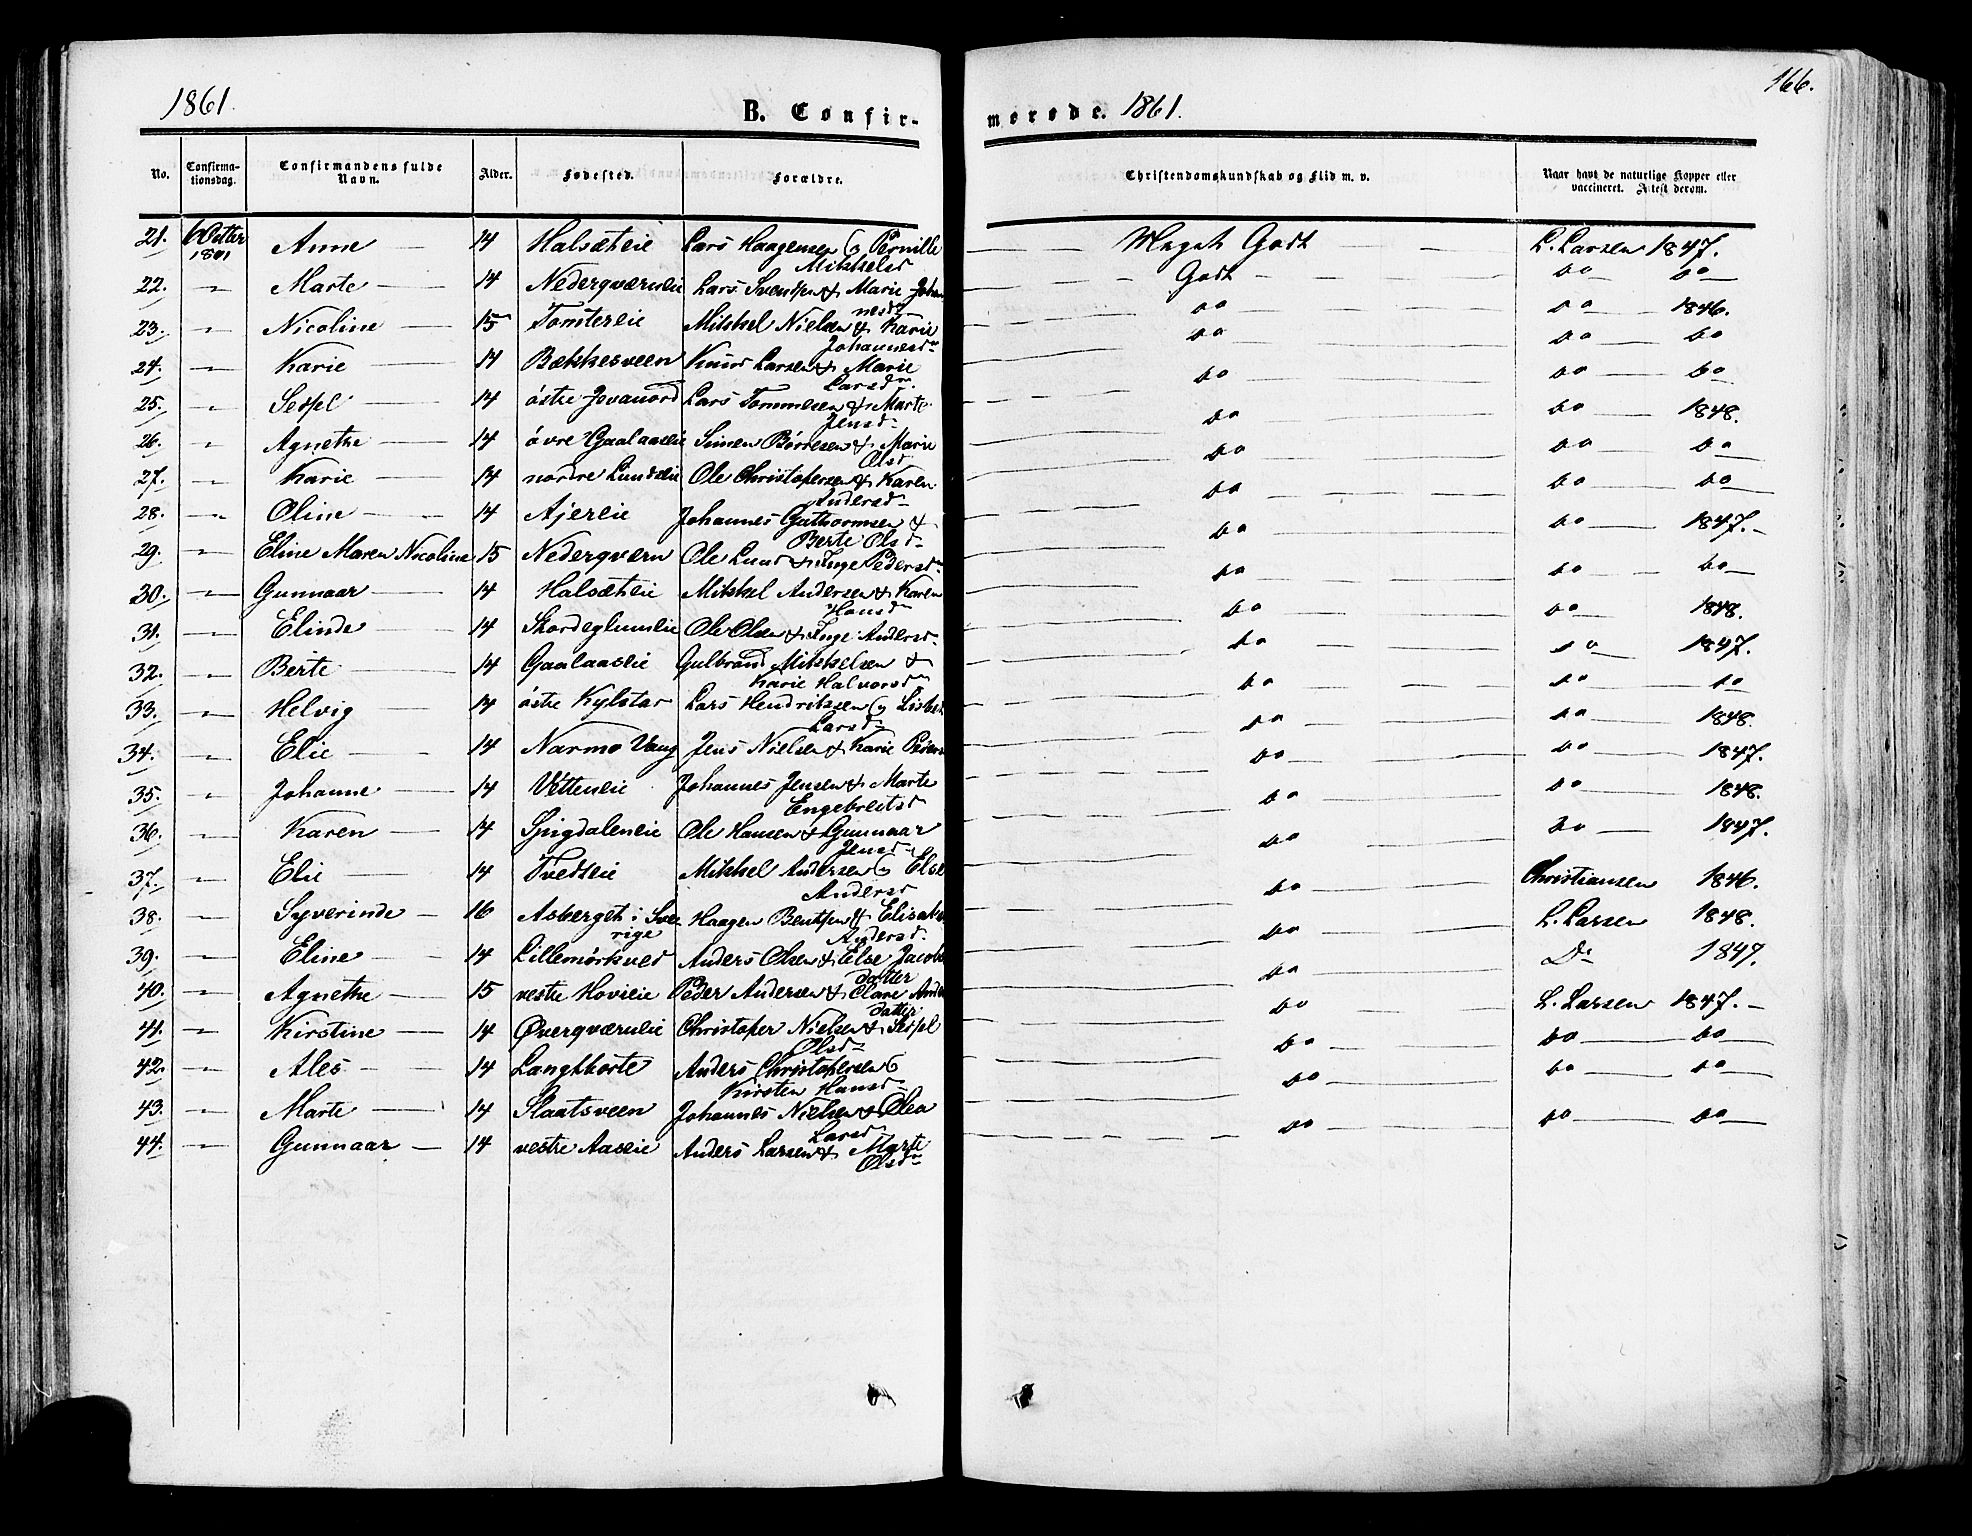 1861.
B. Confir-
No. Confirma-tionsdag. Confirmandens fulde Navn. Alder. Fødested. Forældre.
21. 6 Octbr 1861 Anne 14 Halsæteie Lars Haagensen og Pernille Mikkelsd
22. " Marte 14 Nederqværneie Lars Svendsen & Marie Johannesdr
23. " Nicoline 15 Tomtereie Mikkel Nielsen & Karie Johannesdr
24. " Karie 14 Bækkesveen Knud Larsen & Marie Larsdr.
25. " Sessel 14 østre Lars Tommesen & Marte Jensd
26. " Agnethe 14 øvre Gaalaaseie Simen Børresen & Marie Olsd
27. " Karie 14 nordre Lundseie Ole Christophersen & Karen Andersdr
28. " Oline 14 Ajereie Johannes Guthormsen & Berte Olsdr
29. " Eline Maren Nicoline 15 Nederqværn Ole Lund & Inge Pedersdr
30. " Gunnaar 14 Halsæteie Mikkel Andersen & Karen Hansdr
31. " Elinde 14 Skordeglumeie Ole Olsen & Inge Andersd
32. " Berte 14 Gaalaaseie Gulbrand Mikkelsen & Karie Halvorsdr
33. " Helvig 14 østre Kylstad Lars Hendriksen og Lisbet Larsdr
34. " Elie 14 Narmo Vang Jens Nielsen & Karie
35. " Johanne 14 Vitteneie Johannes Jensen & Marte Engebretsd
36. " Karen 14 Spigdaleneie Ole Hansen & Gunnaar Jensdr
37. " Elie 14 Tvedteie Mikkel Andersen og Else Andersd
38. " Syverinde 16 Asberget i Sverrige Haagen Bentsen & Elisabet Andersd
39. " Eline 14 Lillemørkved Anders Olsen & Else Jacobsdatter
40. " Agnethe 15 vestre Hovieie Peder Andersen & datter
41. " Kirstine 14 Øverqværneie Christoper Nielsen & Sessel Olsdr
42. " Ales 14 Langkkorte Anders Christophersen og Kirsten Hansd
43. " Marte 14 Slaatsveen Johannes Nielsen & Olea Larsd
44. " Gunnaar 14 vestre Aaseie Anders Larsen & Marte Olsdr
166.
merede. 1861.
Christendomskundskab og Flid m. v. Naar havt de naturlige Kopper eller vaccineret. Attest derom.
Meget Godt L. Larsen 1847.
Godt do do
do do 1846.
do do do
do do do
do do 1848.
do do do
do do do
do do 1847.
do do do
do do 1848.
do do 1847.
do do do
do do 1848.
do do 1847.
do do 1848.
do do 1847.
do Christiansen 1846.
do L. Larsen 1848.
do Do 1847.
do L. Larsen 1847.
do do do
do do do
do do do